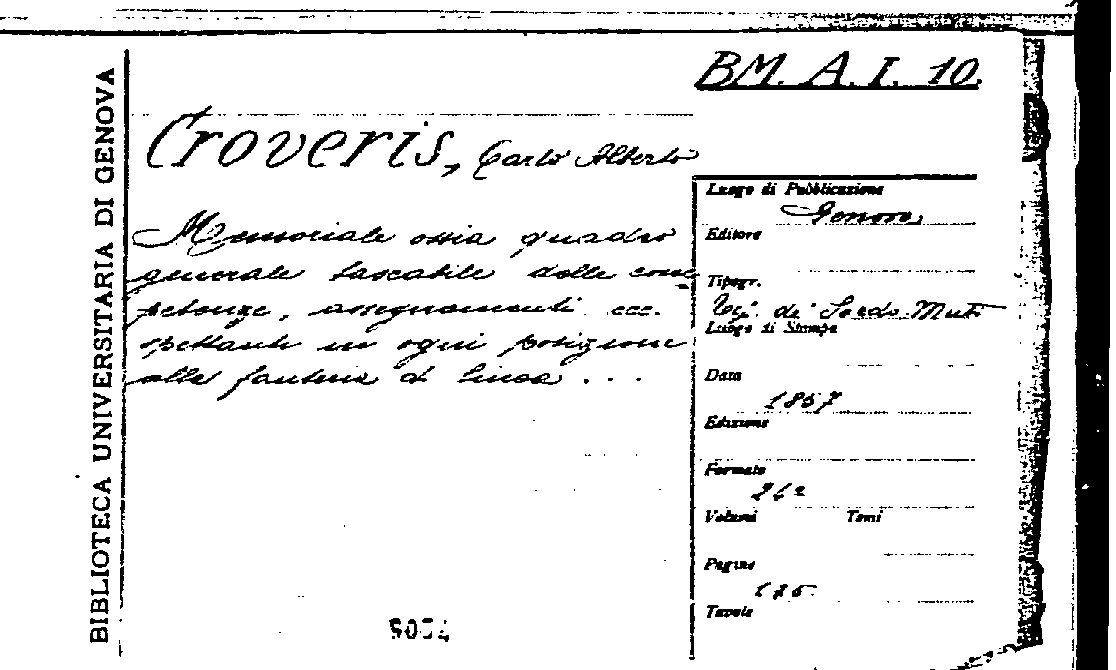 BIBLIOTECA UNIVERSITARIA DI GENOVA
BM. A. I. 10.
Croveris, Carlo Alberto
Memoriale ossia quadro
generale tascabile delle com
petenze, assegnamenti ecc.
spettanti in ogni posizione
alla fanteria di linea . . .
Luogo di Pubblicazione
Genova
Editore
Tipogr.
Tip. di Sordo Muti
Luogo di Stampa
Data
1857
Edizione
Formato
Volumi Tomi
Pagine
Tavole